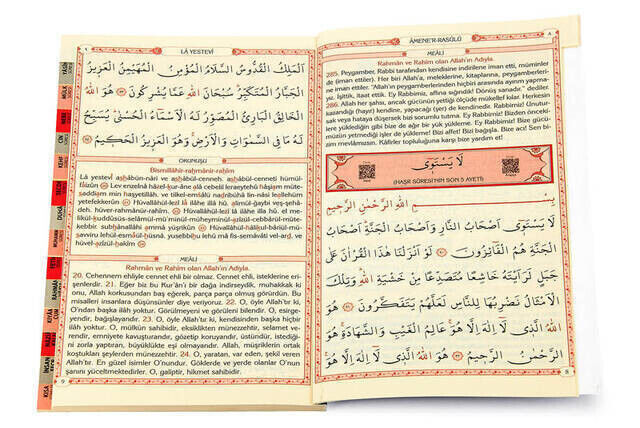 ÂMENE'R-RASÛLÜ
MEÂLİ
Rahman ve Rahîm olan Allah'ın Adıyla.
285. Peygamber, Rabbi tarafından kendisine indirilene iman etti, müminler
de (iman ettiler). "Her biri Allah'a, meleklerine, kitaplarına, peygamberleri-
ne iman ettiler. "Allah'ın peygamberlerinden hiçbiri arasında ayırım yapma-
yız. İşittik, itaat ettik. Ey Rabbimiz, affına sığındık! Dönüş sanadır." dediler.
286. Allah her şahsı, ancak gücünün yettiği ölçüde mükellef kılar. Herkesin
kazandığı (hayır) kendine, yapacağı (şer) de kendinedir. Rabbimiz! Unutur-
sak veya hataya düşersek bizi sorumlu tutma. Ey Rabbimiz! Bizden önceki-
lere yüklediğin gibi bize de ağır bir yük yükleme. Ey Rabbimiz! Bize gücü-
müzün yetmediği işler de yükleme! Bizi affet! Bizi bağışla. Bize acı! Sen bi-
zim mevlâmızsın. Kâfirler topluluğuna karşı bize yardım et!
لَا يَسْتَوِى
(HAŞR SÛRESİ'NİN SON 5 AYETİ)
بِسْمِ اللهِ الرَّحْمٰنِ الرَّحِيمِ
لَا يَسْتَوِى اَصْحَابُ النَّارِ وَاَصْحَابُ الْجَنَّةِ اَصْحَابُ
الْجَنَّةِ هُمُ الْفَائِزُونَ لَوْ اَنْزَلْنَا هٰذَا الْقُرْاٰنَ عَلٰى
جَبَلٍ لَرَاَيْتَهُ خَاشِعًا مُتَصَدِّعًا مِنْ خَشْيَةِ اللهِ وَتِلْكَ
الْاَمْثَالُ نَضْرِبُهَا لِلنَّاسِ لَعَلَّهُمْ يَتَفَكَّرُونَ هُوَ
اللهُ الَّذِى لَا اِلٰهَ اِلَّا هُوَ عَالِمُ الْغَيْبِ وَالشَّهَادَةِ هُوَ
الرَّحْمٰنُ الرَّحِيمُ هُوَ اللهُ الَّذِى لَا اِلٰهَ اِلَّا هُوَ
8
LÂ YESTEVÎ
اَلْمَلِكُ الْقُدُّوسُ السَّلَامُ الْمُؤْمِنُ الْمُهَيْمِنُ الْعَزِيزُ
الْجَبَّارُ الْمُتَكَبِّرُ سُبْحَانَ اللهِ عَمَّا يُشْرِكُونَ هُوَ اللهُ
الْخَالِقُ الْبَارِئُ الْمُصَوِّرُ لَهُ الْاَسْمَاءُ الْحُسْنٰى يُسَبِّحُ
لَهُ مَا فِى السَّمٰوَاتِ وَالْاَرْضِ وَهُوَ الْعَزِيزُ الْحَكِيمُ
OKUNUŞU
Bismillâhir-rahmânir-rahîm
Lâ yestevî ashâbün-nâri ve ashâbül-cenneh. ashâbül-cenneti hümül-
fâizûn Lev enzelnâ hâzel-kur-âne alâ cebelil leraeytehû hâşiam müte-
saddiam min hasyetillâh. ve tilkel-emsâlü nadribühâ lin-nâsi leallehüm
yetefekkerûn Hüvallâhül-lezî lâ ilâhe illâ hû. alimül-ğaybi veş-şehâ-
deh. hüver-rahmânür-rahîm. Hüvallâhül-lezî lâ ilâhe illâ hû. el me-
likül-kuddûsüs-selâmül-mü'minül-müheyminül-azîzül-cebbârül-müte-
kebbir. sübhânallâhi ammâ yüşrikûn Hüvallâhül-hâlikul-bâriül-mü-
savviru lehül-esmâül-hüsnâ. yusebbihu lehû mâ fis-semâvâti vel-ard, ve
hüvel-azîzül-hakîm
MEÂLİ
Rahman ve Rahîm olan Allah'ın Adıyla.
20. Cehennem ehliyle cennet ehli bir olmaz. Cennet ehli, isteklerine eri-
şenlerdir. 21. Eğer biz bu Kur'ân'ı bir dağa indirseydik, muhakkak ki
onu, Allah korkusundan baş eğerek, parça parça olmuş görürdün. Bu
misalleri insanlara düşünsünler diye veriyoruz. 22. O, öyle Allah'tır ki,
O'ndan başka ilâh yoktur. Görülmeyeni ve görüleni bilendir. O, esirge-
yendir, bağışlayandır. 23. O, öyle Allah'tır ki, kendisinden başka hiçbir
ilâh yoktur. O, mülkün sahibidir, eksiklikten münezzehtir, selamet ve-
rendir, emniyete kavuşturandır, gözetip koruyandır, üstündür, istediği-
ni zorla yaptıran, büyüklükte eşi olmayandır. Allah, müşriklerin ortak
koştukları şeylerden münezzehtir. 24. O, yaratan, var eden, şekil veren
Allah'tır. En güzel isimler O'nundur. Göklerde ve yerde olanlar O'nun
şanını yüceltmektedirler. O, galiptir, hikmet sahibidir.
9
YÂSÎN
MÜLK
NEBE
CİN
KEHF
DUHÂ
RAHMÂN
İNSAN
KISA